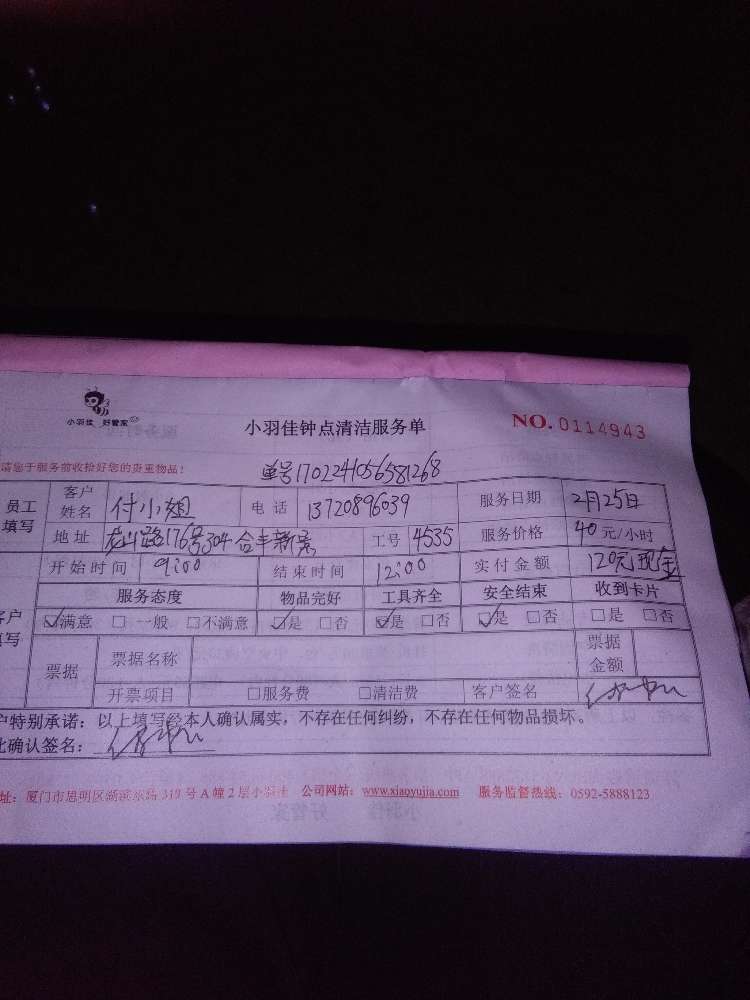 小羽佳 好管家
小羽佳钟点清洁服务单
NO.0114943
请您于服务前收拾好您的贵重物品！
单号1702241056581268
员工填写 客户姓名 付小姐 电话 13720896039 服务日期 2月25日
地址 龙山路176号304合丰新景 工号 4535 服务价格 40元/小时
开始时间 9:00 结束时间 12:00 实付金额 120元现金
服务态度 物品完好 工具齐全 安全结束 收到卡片
☑满意 □一般 □不满意 ☑是 □否 ☑是 □否 ☑是 □否 □是 □否
户
写
票据 票据名称 票据金额
开票项目 □服务费 □清洁费 客户签名
户特别承诺：以上填写经本人确认属实，不存在任何纠纷，不存在任何物品损坏。
此确认签名：
址：厦门市思明区湖滨东路319号A幢2层小羽佳 公司网站：www.xiaoyujia.com 服务监督热线：0592-5888123